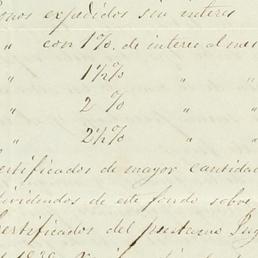 Bonos expedidos sin interes
" con 1% de interes al mes
" 1½% " "
" 2 % " "
" 2½% " "
Certificados de mayor cantidad
dividendos de este fondo sobre
Certificados del prestamo